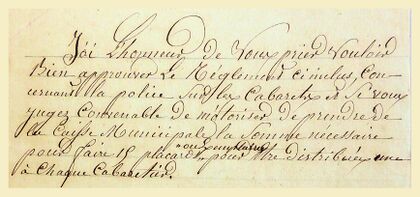 J'ai L'honneur de Vous prier Vouloir
Bien approuver Le Réglement ci inclus, Con-
cernant la police Sur les Cabarets et Si vous
jugez Convenable de m'otoriser de prendre de
la Caisse Municipale la Somme nécessaire
"ou Exemplaires"
pour faire 15 placards pour être distribués une
à Chaque Cabaretier.